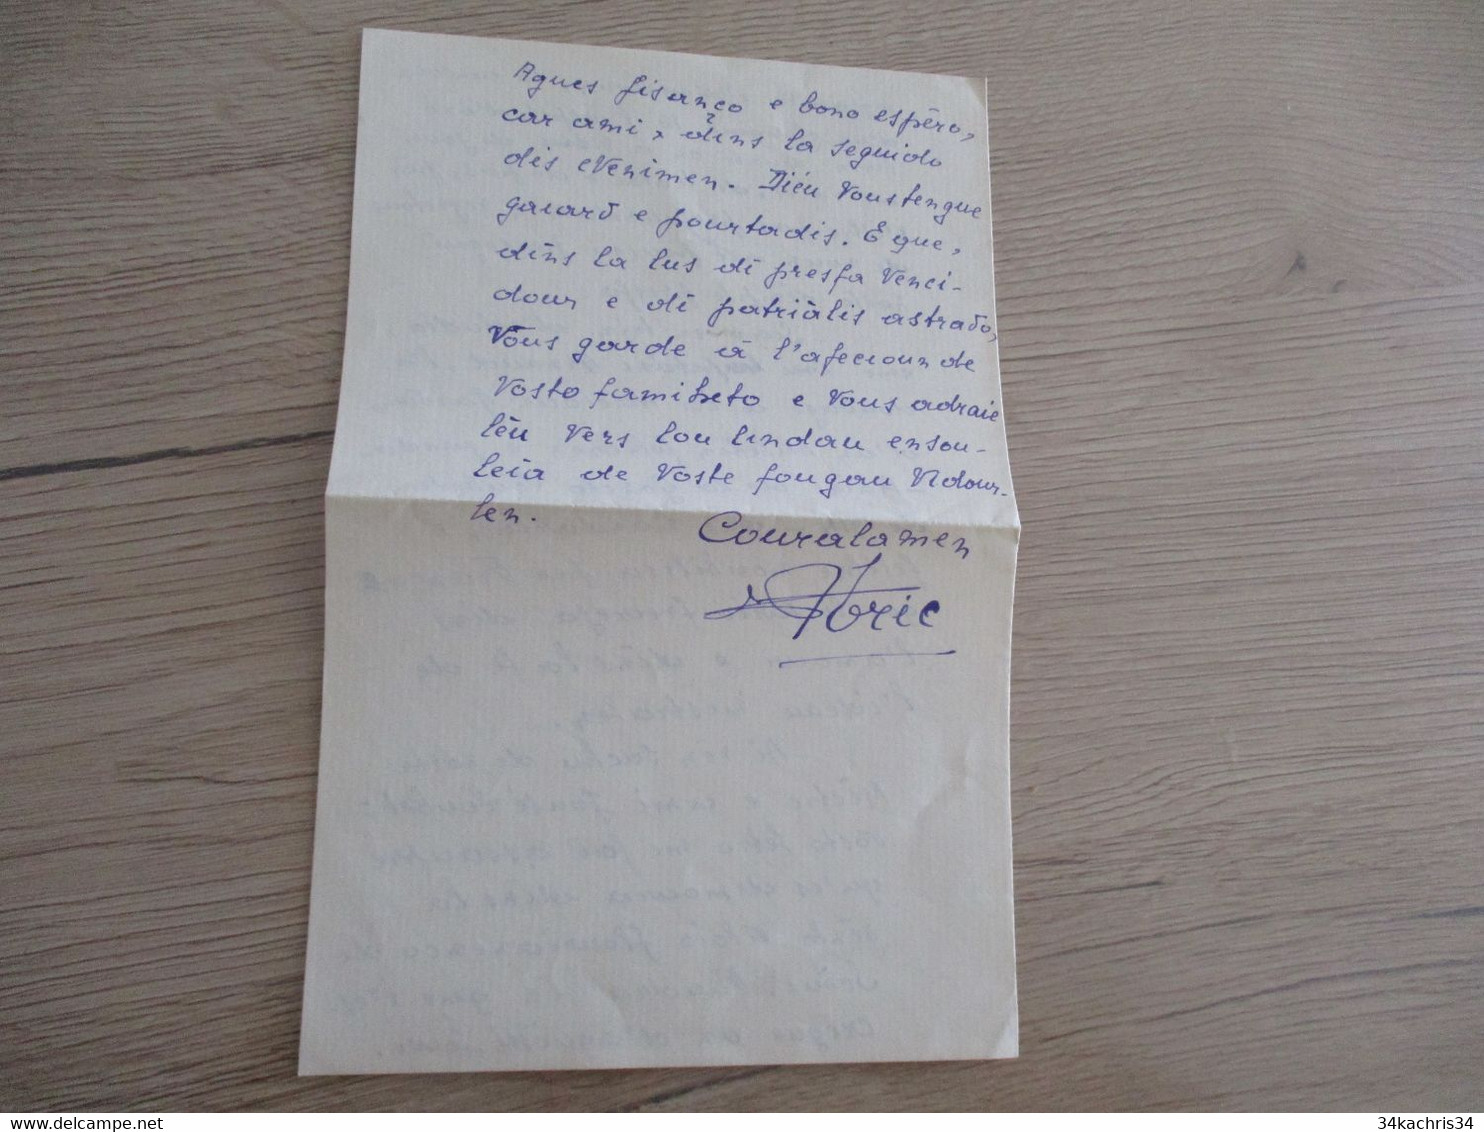 Agues fisanço e bono espèro,
car ami, dins la seguido
dis evenimen. Diéu vous tengue
gaiard e pourtadis. E que,
dins la lus di presfa venci-
dour e di patrialis astrado,
vous garde à l'afecioun de
vosto famiheto e vous adraie
lèu vers lou lindau ensou-
leia de voste fougau
len.
Couralamen
34kachris34